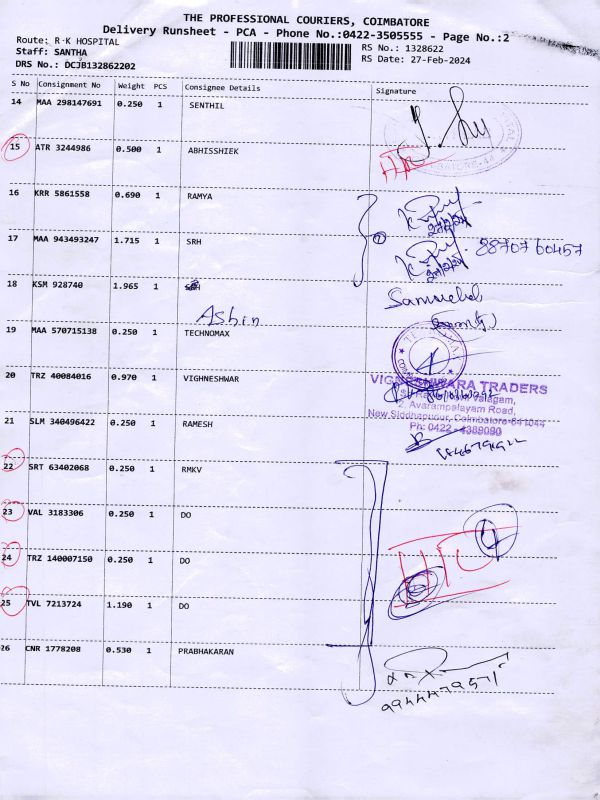 THE PROFESSIONAL COURIERS, COIMBATORE
Delivery Runsheet - PCA - Phone No.:0422-3505555 - Page No.:2
Route: R-K HOSPITAL
Staff: SANTHA
DRS No.: DCJB132862202
RS No.: 1328622
RS Date: 27-Feb-2024
S No Consignment No Weight PCS Consignee Details Signature
14 MAA 298147691 0.250 1 SENTHIL
15 ATR 3244986 0.500 1 ABHISSHIEK
16 KRR 5861558 0.690 1 RAMYA
17 MAA 943493247 1.715 1 SRH
8870760457
18 KSM 928740 1.965 1
Ashin
19 MAA 570715138 0.250 1 TECHNOMAX
20 TRZ 40084016 0.970 1 VIGHNESHWAR
VIGNESHWARA TRADERS
Avarampalayam Road,
New Siddhapudur, Coimbatore-641044
Ph: 0422 - 4389090
21 SLM 340496422 0.250 1 RAMESH
22 SRT 63402068 0.250 1 RMKV
23 VAL 3183306 0.250 1 DO
24 TRZ 140007150 0.250 1 DO
25 TVL 7213724 1.190 1 DO
26 CNR 1778208 0.530 1 PRABHAKARAN
9944479571